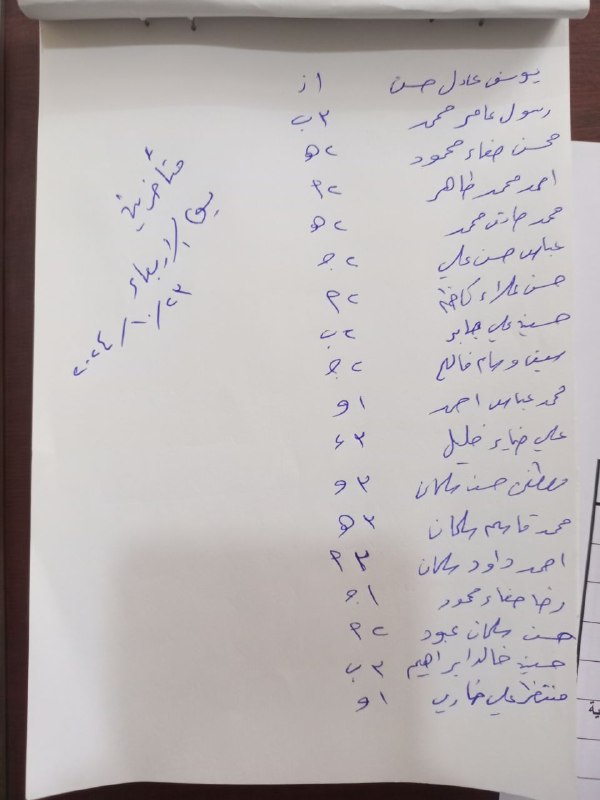 يوسف عادل حسن ١ز
رسول عامر محمد ٣ب
محسن صفاء محمود ٢هـ
احمد محمد طاهر ٢م
محمد صادق محمد ٢هـ
عباس حسن علي ٢ج
حسن علاء كاظم ٢م
حسين علي جابر ٢ب
سيف وسام فالح ٢ج
محمد عباس احمد ١و
علي ضياء خليل ٣ء
مصطفى حسن سلمان ٣و
محمد قاسم سلمان ٣هـ
احمد داود سلمان ٣م
رضا صفاء محمود ١ج
حسن سلمان عبود ٢م
حسين خالد ابراهيم ٣ب
منتظر علي ١و
متأخرين
يوم الاربعاء
٢٠٢٤/١٠/٢٣